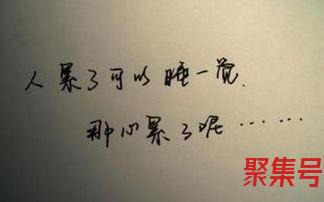 人累了可以睡一觉.
那心累了呢……
聚集号